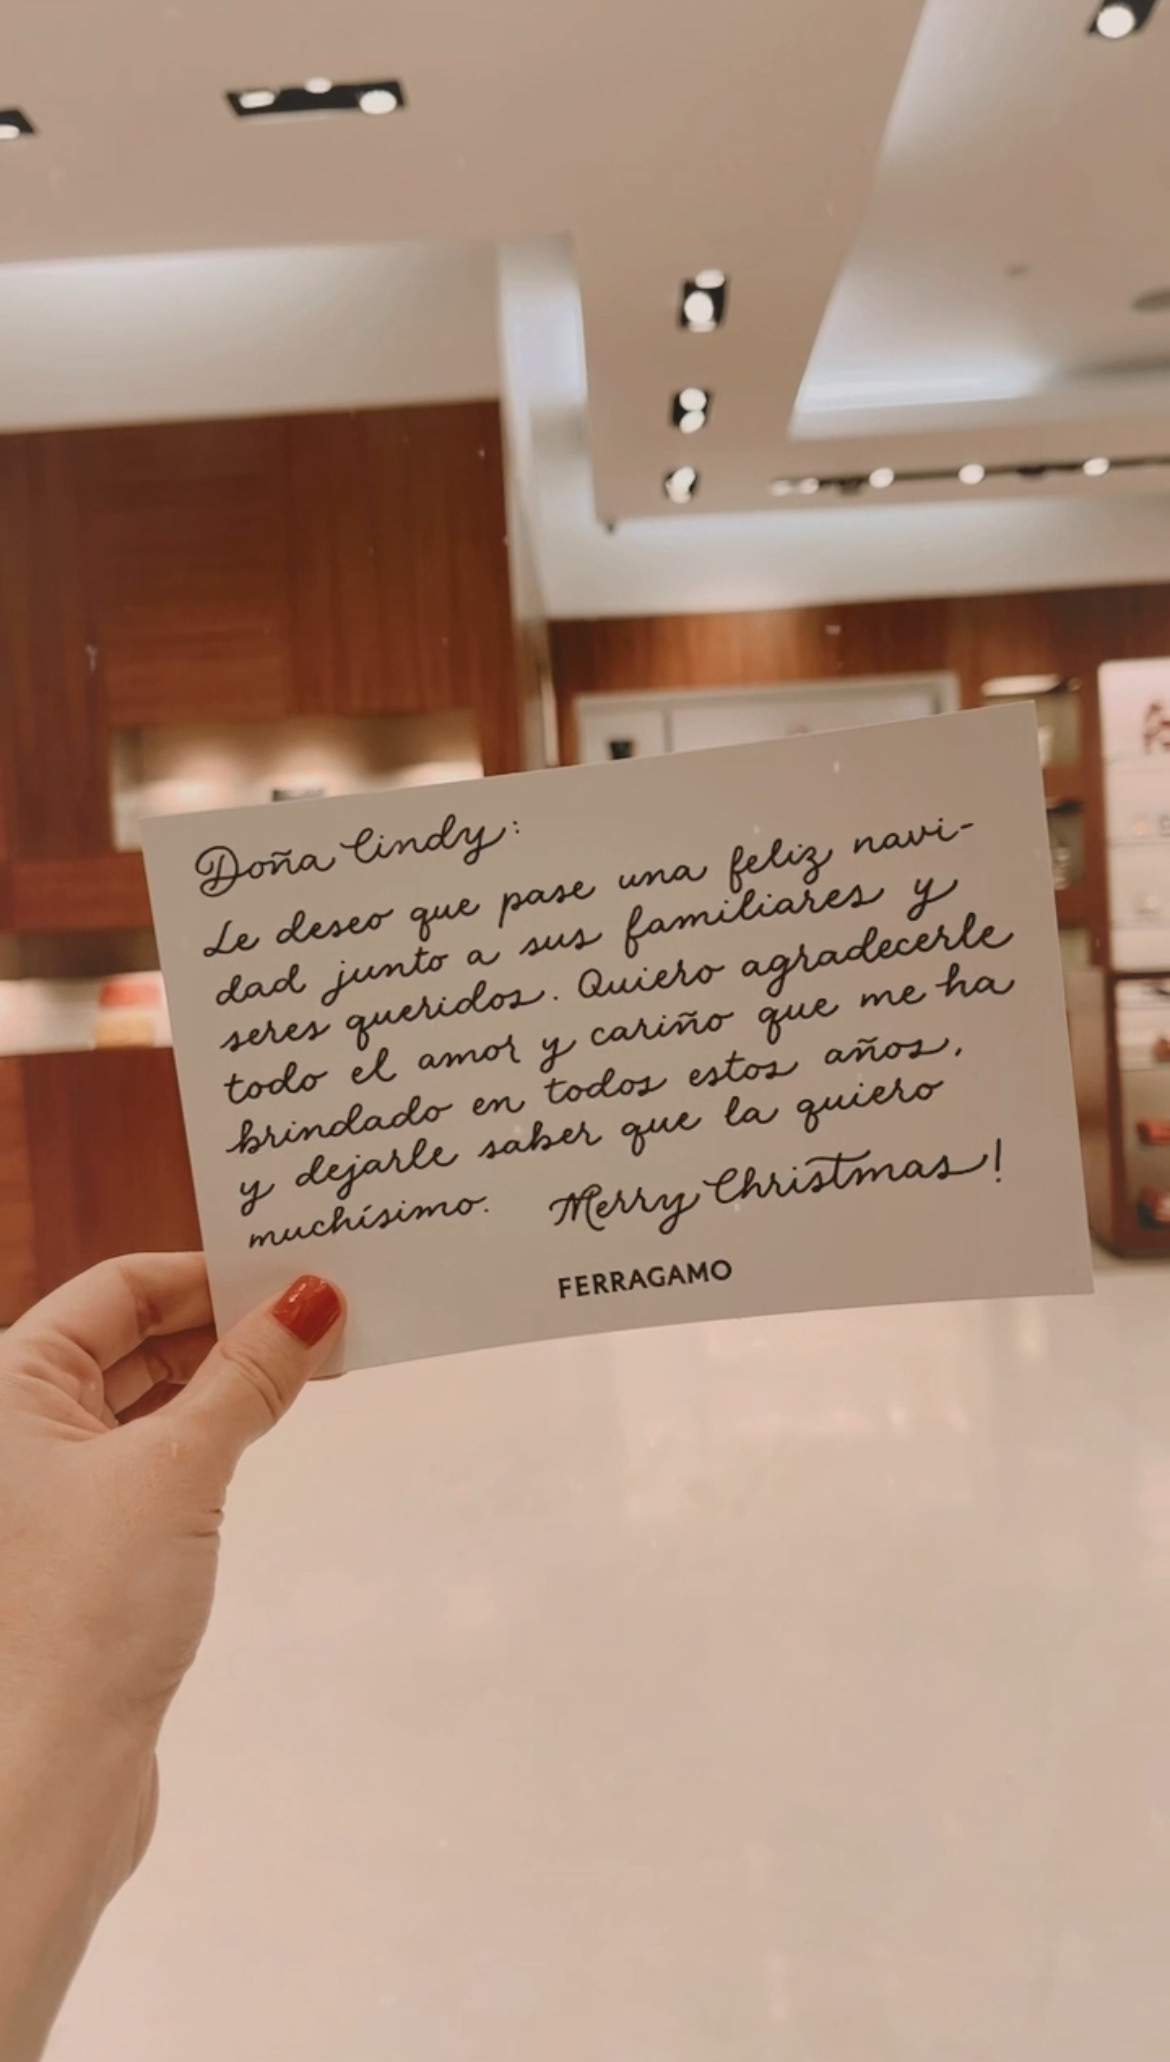 Doña Cindy:
Le deseo que pase una feliz navi-
dad junto a sus familiares y
seres queridos. Quiero agradecerle
todo el amor y cariño que me ha
brindado en todos estos años,
y dejarle saber que la quiero
muchísimo. Merry Christmas!
FERRAGAMO